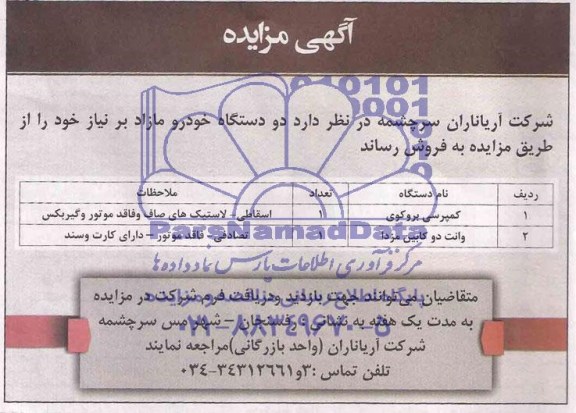 آگهی مزایده
شرکت آریاناران سرچشمه در نظر دارد دو دستگاه خودرو مازاد بر نیاز خود را از
طریق مزایده به فروش رساند
ردیف نام دستگاه تعداد ملاحظات
۱ کمپرسی یروکوی ۱ اسقاطی- لاستیک های صاف وفاقد موتور وگیربکس
۲ وانت دو کابین مزدا ۱ تصادفی- فاقد موتور- دارای کارت وسند
ParsNamadData
مرکز فرآوری اطلاعات پارس نماد داده ها
متقاضیان می توانند جهت بازدید ودریافت فرم شراکت در مزایده
به مدت یک هفته به نشانی رفسنجان - شهر مس سرچشمه
۰۲۱-۸۸۳۴۹۶۷۰-۵
شرکت آریاناران (واحد بازرگانی)مراجعه نمایند
تلفن تماس :۳و۳۴۳۱۲۶۶۱-۰۳۴